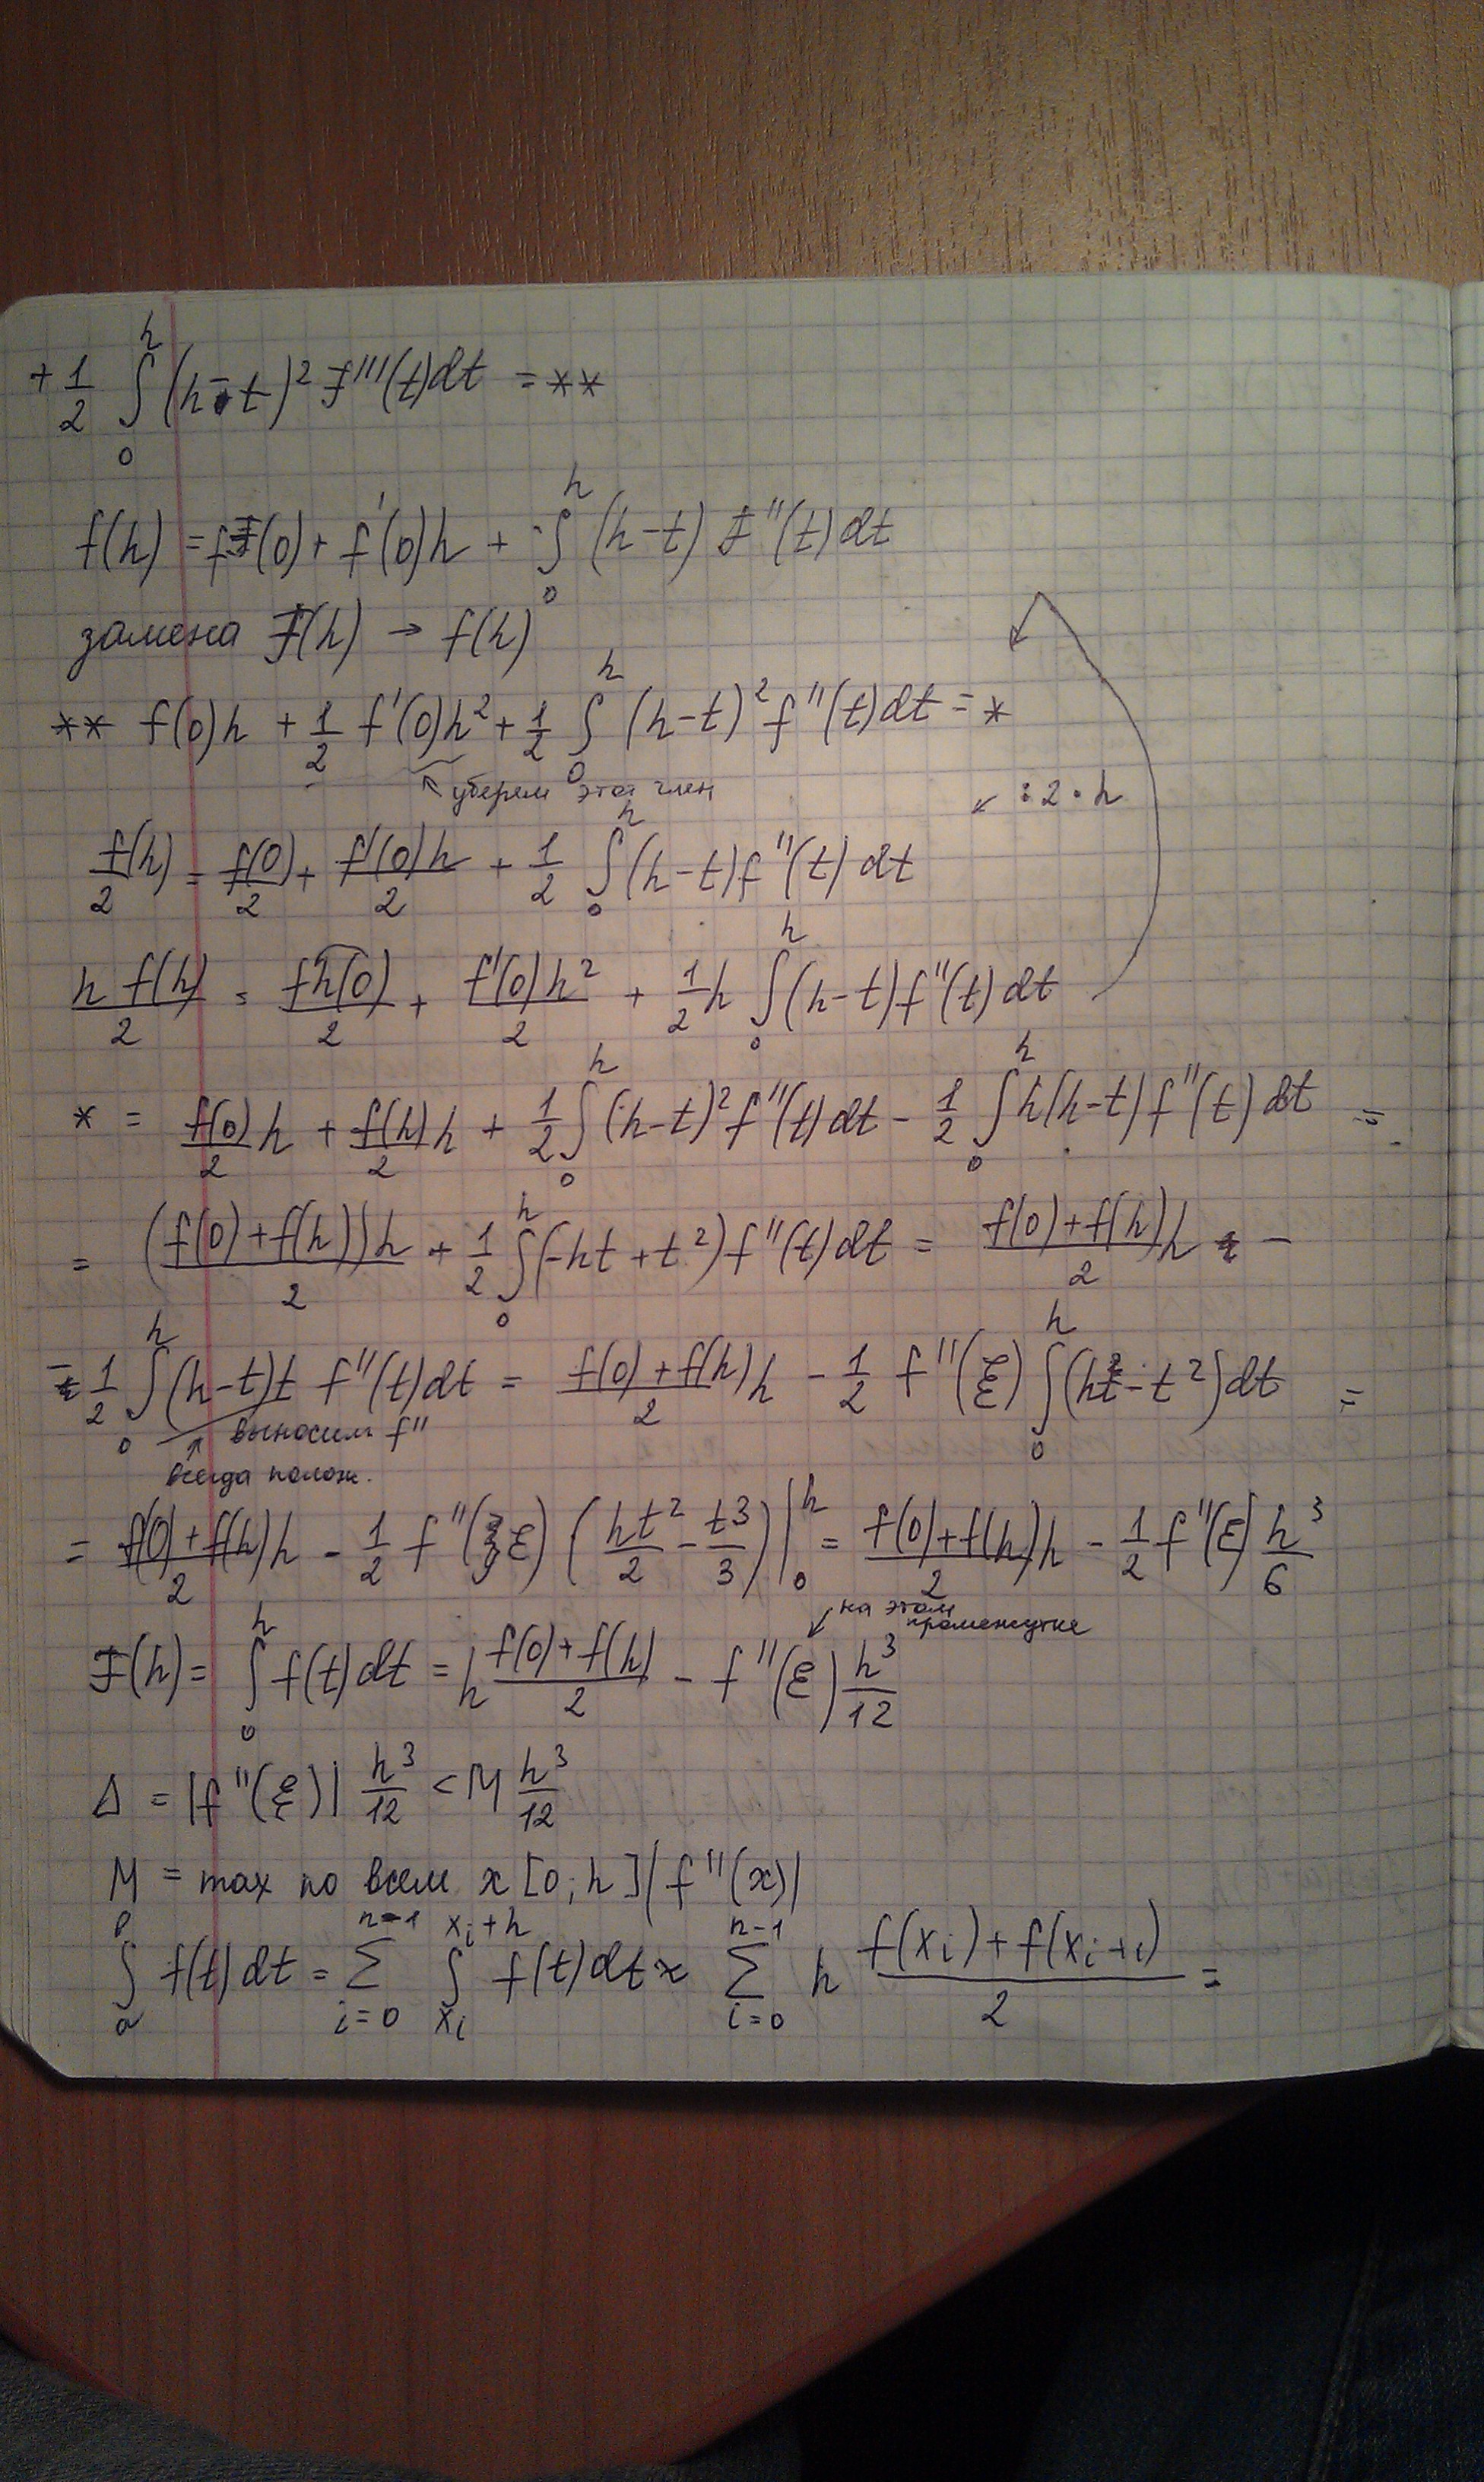 + 1/2 ∫₀ʰ (h-t)² F'''(t)dt = **
f(h) = f(0) + f'(0)h + ∫₀ʰ (h-t) f''(t)dt
замена F(h) → f(h)
** f(0)h + 1/2 f'(0)h² + 1/2 ∫₀ʰ (h-t)² f''(t)dt = *
↖ уберем этот член
↙ :2 · h
f(h)/2 = f(0)/2 + f'(0)h/2 + 1/2 ∫₀ʰ (h-t)f''(t)dt
h f(h)/2 = fh(0)/2 + f'(0)h²/2 + 1/2 h ∫₀ʰ (h-t)f''(t)dt
* = f(0)/2 h + f(h)/2 h + 1/2 ∫₀ʰ (h-t)² f''(t)dt - 1/2 ∫₀ʰ h(h-t)f''(t)dt =
= (f(0)+f(h))h/2 + 1/2 ∫₀ʰ (-ht+t²)f''(t)dt = f(0)+f(h)/2 h -
- 1/2 ∫₀ʰ (h-t)t f''(t)dt = f(0)+f(h)/2 h - 1/2 f''(ξ) ∫₀ʰ (ht-t²)dt =
выносим f''
всегда полож.
= f(0)+f(h)/2 h - 1/2 f''(ξ) (ht²/2 - t³/3)|₀ʰ = f(0)+f(h)/2 h - 1/2 f''(ξ) h³/6
↙ на этом промежутке
F(h) = ∫₀ʰ f(t)dt = h f(0)+f(h)/2 - f''(ξ) h³/12
Δ = |f''(ξ)| h³/12 < M h³/12
M = max по всем x [0; h] |f''(x)|
∫ₐᵇ f(t)dt = Σ_{i=0}^{n-1} ∫_{xᵢ}^{xᵢ+h} f(t)dt ≈ Σ_{i=0}^{n-1} h f(xᵢ)+f(xᵢ₊₁)/2 =